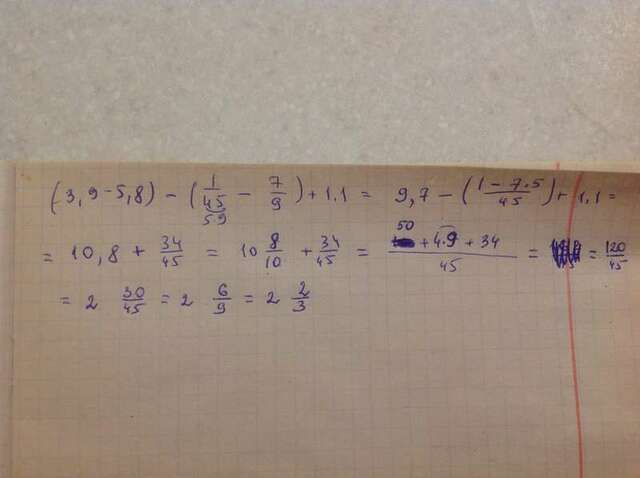 (3,9-5,8) - (1/45 - 7/9) + 1.1 = 9,7 - (1-7.5/45) + 1,1 =
5 9
= 10,8 + 34/45 = 10 8/10 + 34/45 = 50 + 4.9 + 34/45 = = 120/45
= 2 30/45 = 2 6/9 = 2 2/3